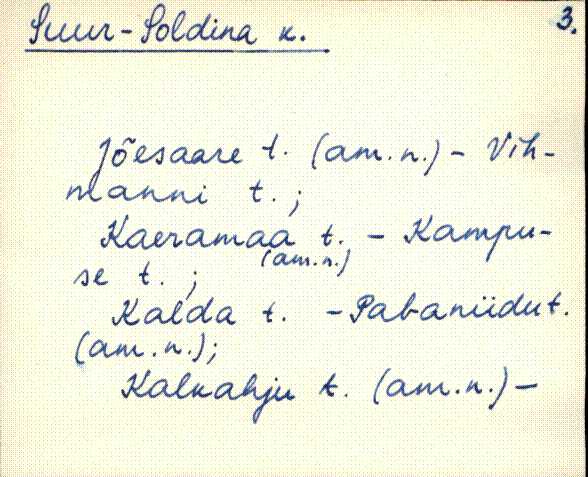 Suur-Soldina k. 3.
Jõesaare t. (am.n.) - Vih-
manni t.;
Kaeramaa t. - Kampu-
(am.n.)
se t.;
Kalda t. - Pabaniidu t.
(am.n.);
Kalkahju t. (am.n.) -